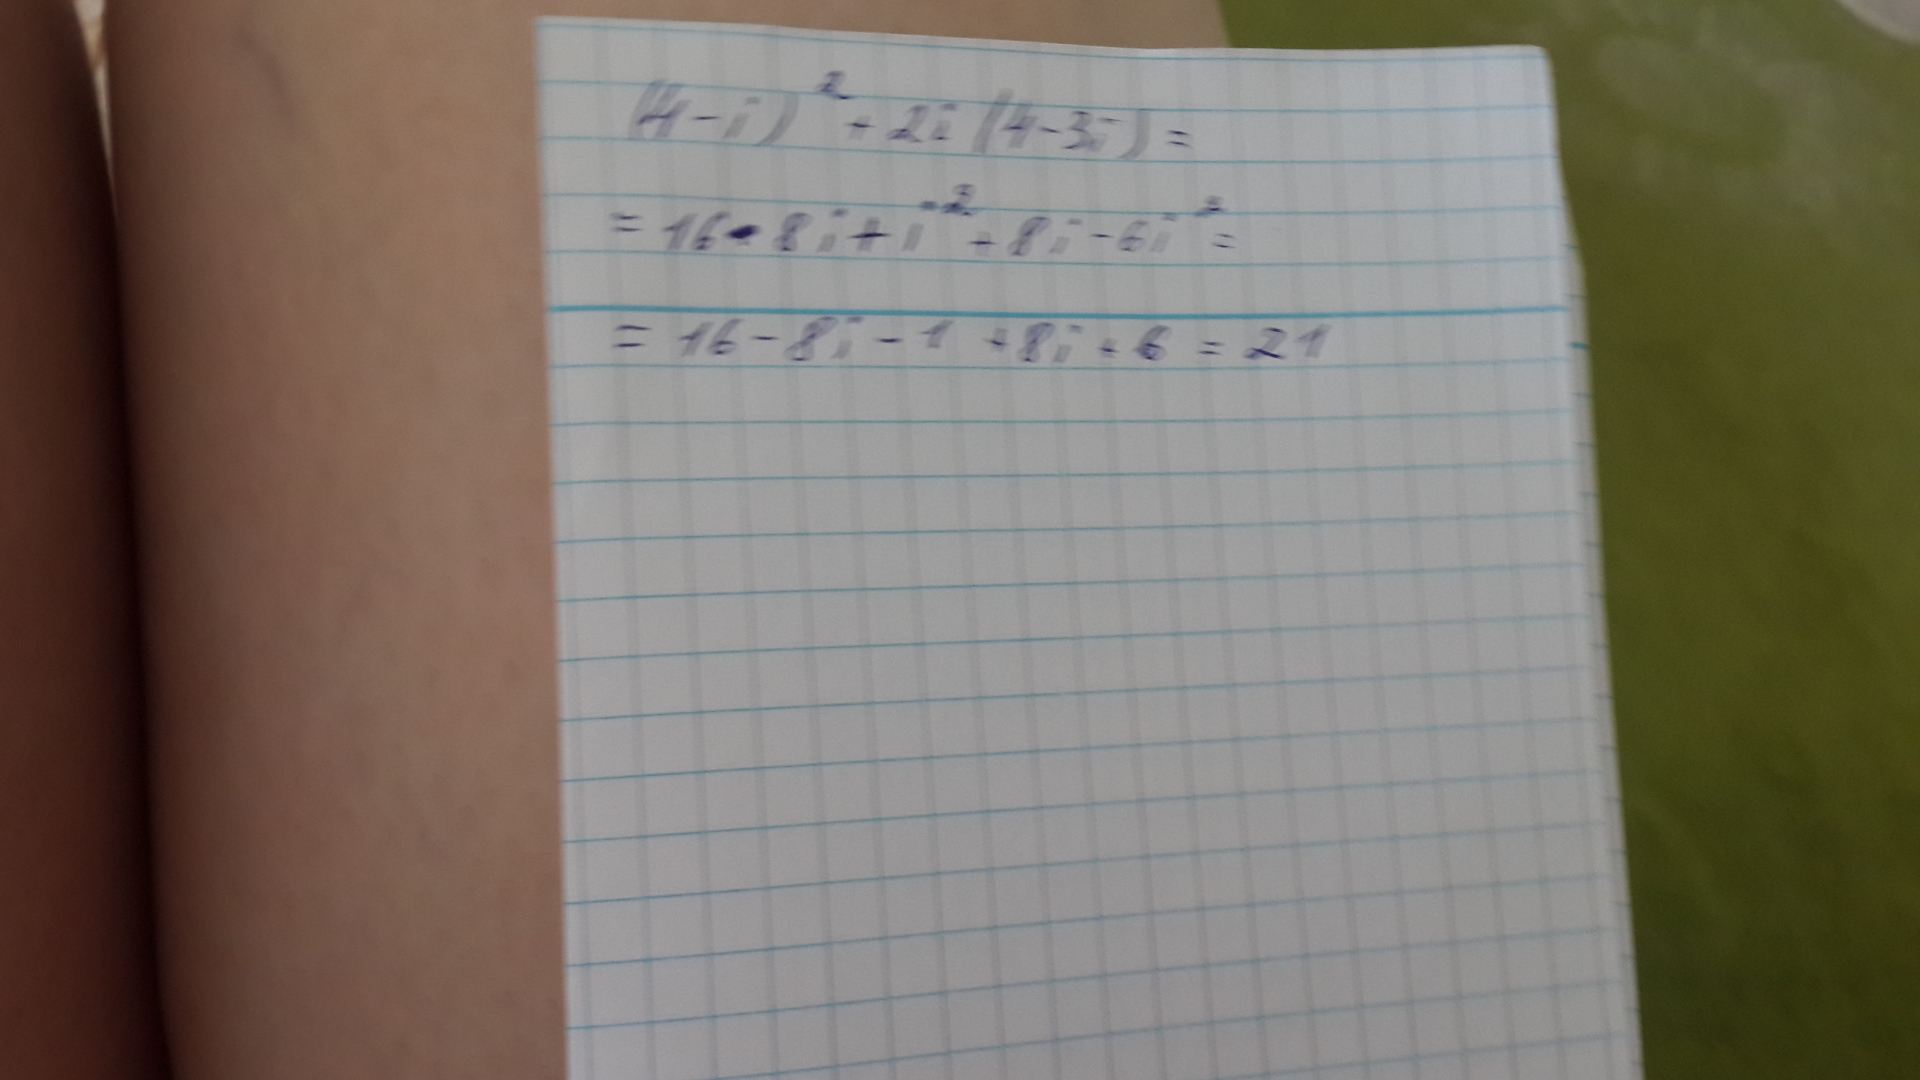 (4-i)² + 2i (4-3i) =
= 16 - 8i + i² + 8i - 6i² =
= 16 - 8i - 1 + 8i + 6 = 21